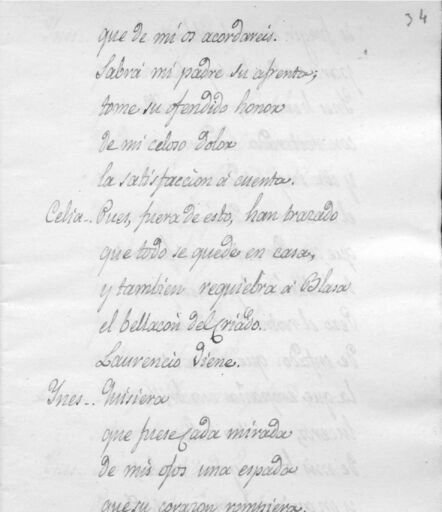 34
que de mi os acordareis.
Sabrá mi padre su afrenta;
tome su ofendido honor
de mi celoso dolor
la satisfaccion á cuenta.
Celia-. Pues, fuera de esto, han trazado
que todo se quede en casa,
y tambien requiebra á Blasa
el bellacón del Criado.
Laurencio viene.
Ynes-. Quisiera
que fuese Cada mirada
de mis ojos una espada
que su corazon rompiera.